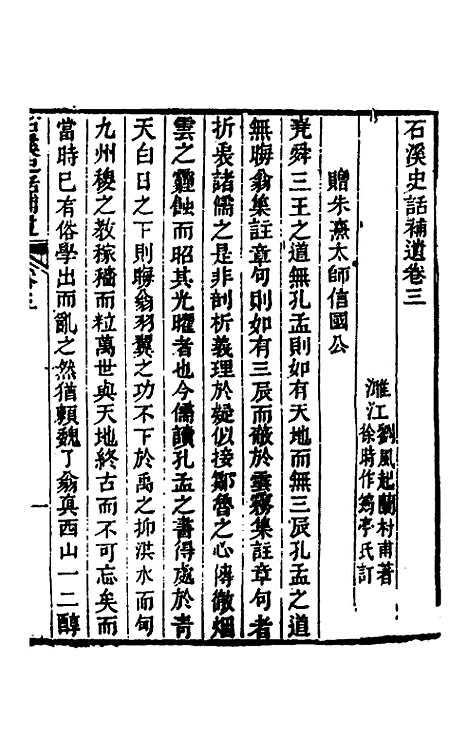 石溪史話補遺卷三
濉江劉風起蘭村甫著
徐時作筠亭氏訂
贈朱熹太師信國公
堯舜三王之道無孔孟則如有天地而無三辰孔孟之道
無晦翁集註章句則如有三辰而蔽於雲霧集註章句者
折衷諸儒之是非剖析義理於疑似接鄒魯之心傳徹烟
雲之霾蝕而昭其光曜者也今儒讀孔孟之書得處於青
天白日之下則晦翁羽翼之功不下於禹之抑洪水而甸
九州稷之教稼穡而粒萬世與天地終古而不可忘矣而
當時已有俗學出而亂之然猶賴魏了翁真西山一二醇
石溪史話補遺 卷三 一